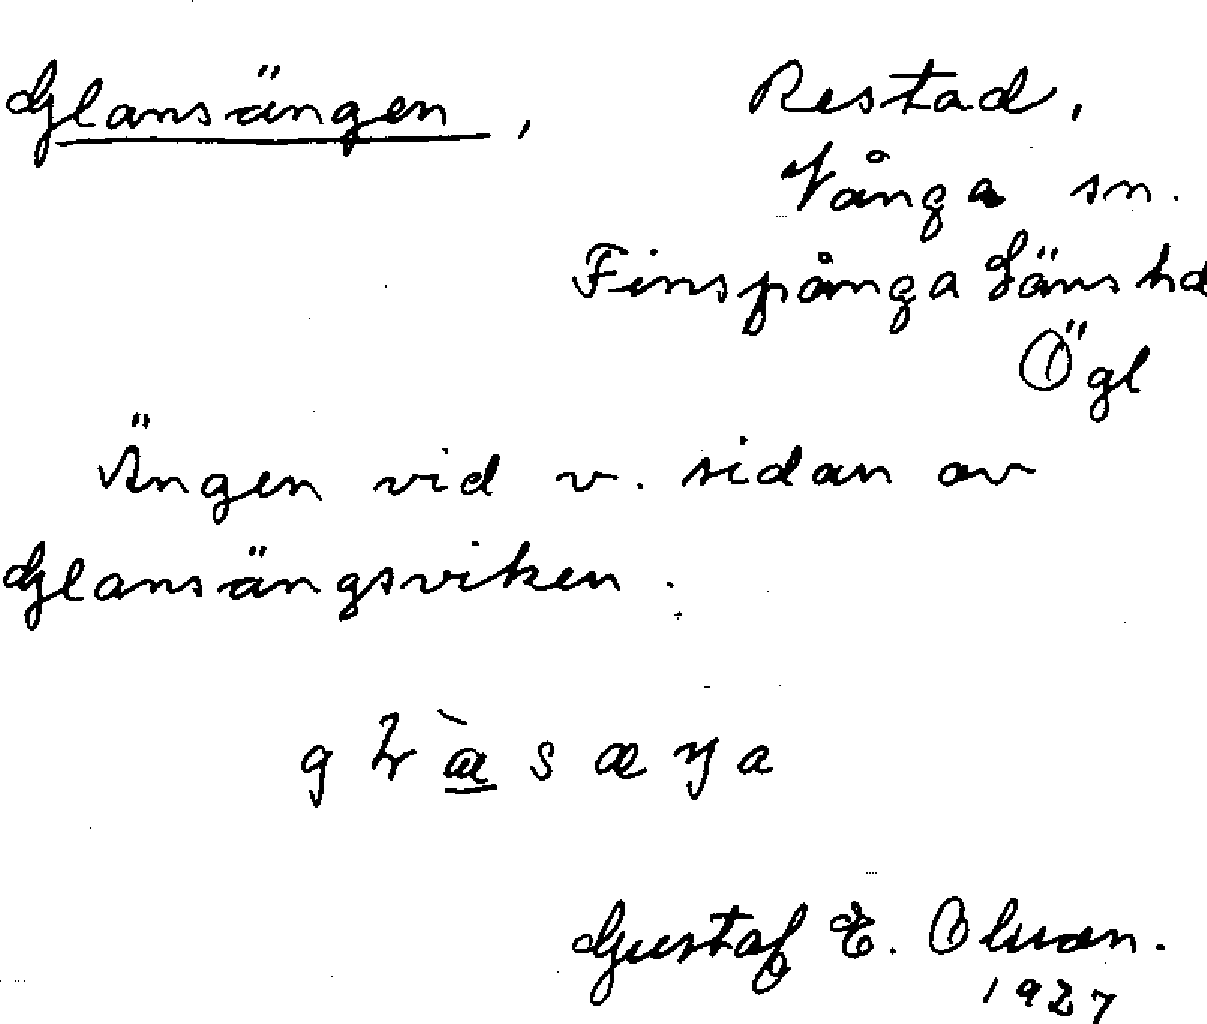 Glansängen, Restad,
Vånga sn.
Finspånga Läns hd
Ögl
Ängen vid v. sidan av
Glansängsviken.
Gustaf E.
1927